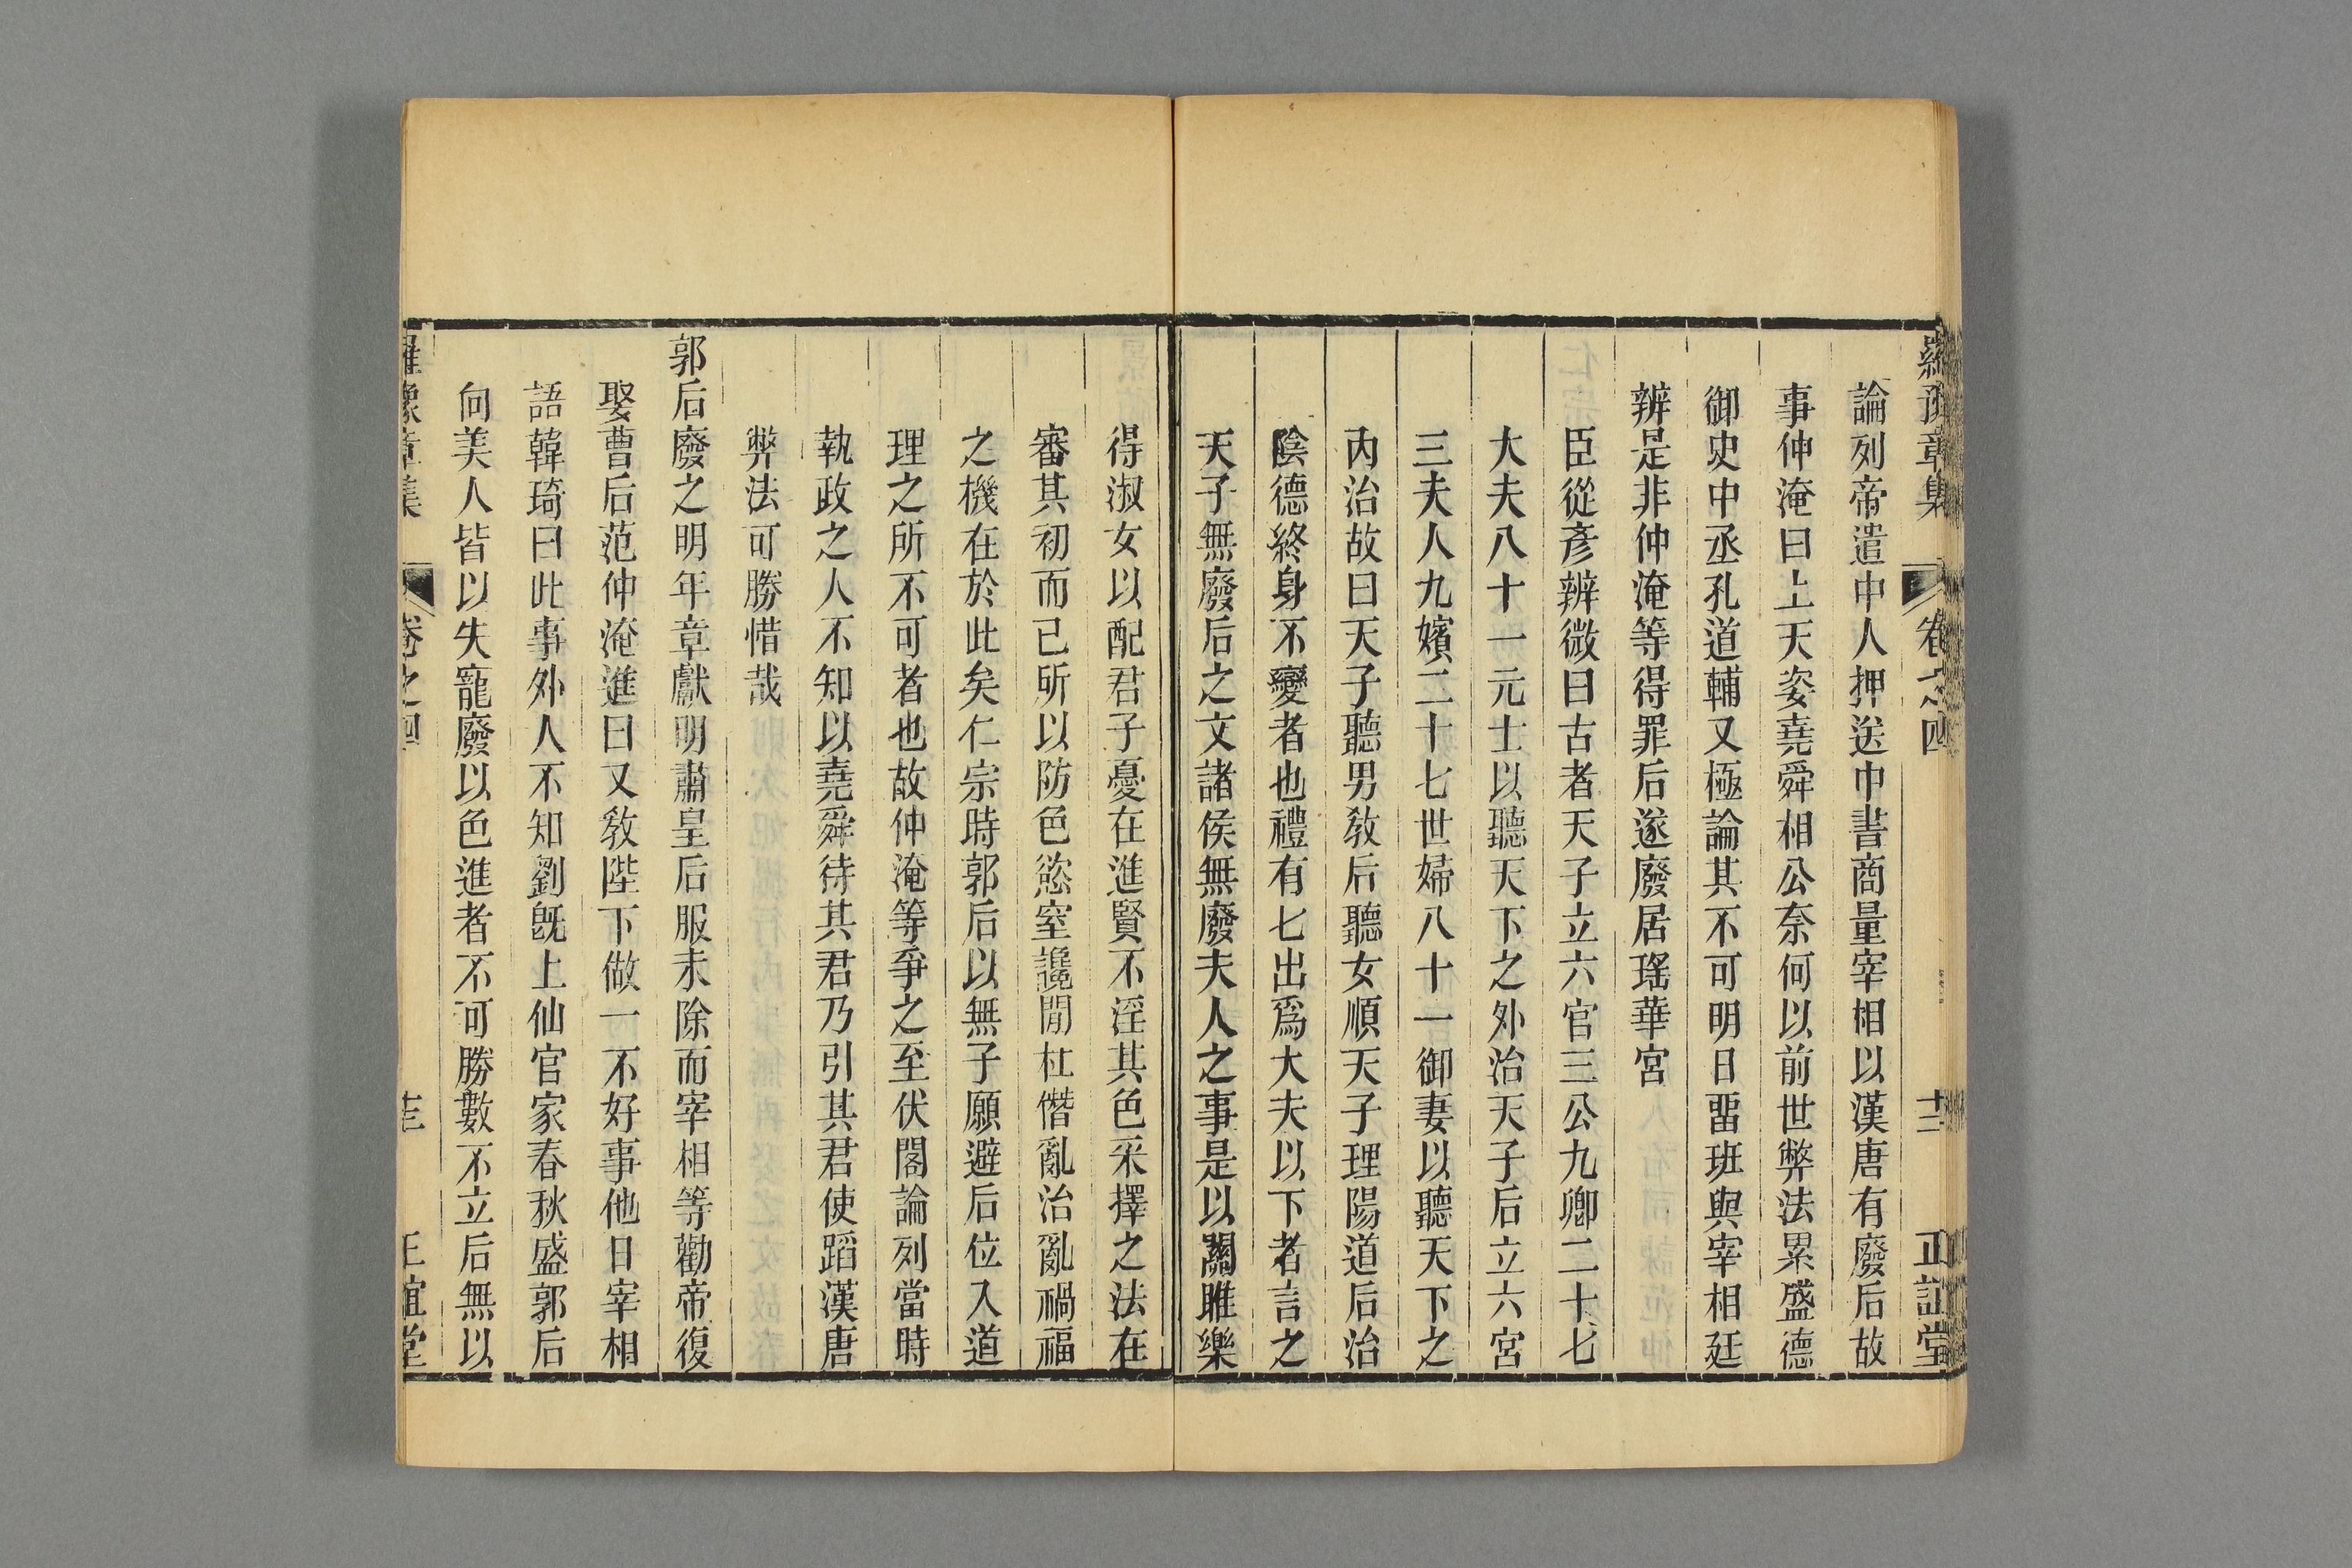 羅豫章集 卷之四 十二 正誼堂
論列帝遣中人押送中書商量宰相以漢唐有廢后故
事仲淹曰上天姿堯舜相公奈何以前世弊法累盛德
御史中丞孔道輔又極論其不可明日畱班與宰相廷
辨是非仲淹等得罪后遂廢居瑤華宮
臣從彥辨微曰古者天子立六官三公九卿二十七
大夫八十一元士以聽天下之外治天子后立六宮
三夫人九嬪二十七世婦八十一御妻以聽天下之
内治故曰天子聽男教后聽女順天子理陽道后治
陰德終身不變者也禮有七出爲大夫以下者言之
天子無廢后之文諸侯無廢夫人之事是以關雎樂
得淑女以配君子憂在進賢不淫其色采擇之法在
審其初而已所以防色慾窒讒閒杜僭亂治亂禍福
之機在於此矣仁宗時郭后以無子願避后位入道
理之所不可者也故仲淹等爭之至伏閤論列當時
執政之人不知以堯舜待其君乃引其君使蹈漢唐
弊法可勝惜哉
郭后廢之明年章獻明肅皇后服未除而宰相等勸帝復
娶曹后范仲淹進曰又敎陛下做一不好事他日宰相
語韓琦曰此事外人不知劉旣上仙官家春秋盛郭后
向美人皆以失寵廢以色進者不可勝數不立后無以
羅豫章集 卷之四 十三 正誼堂